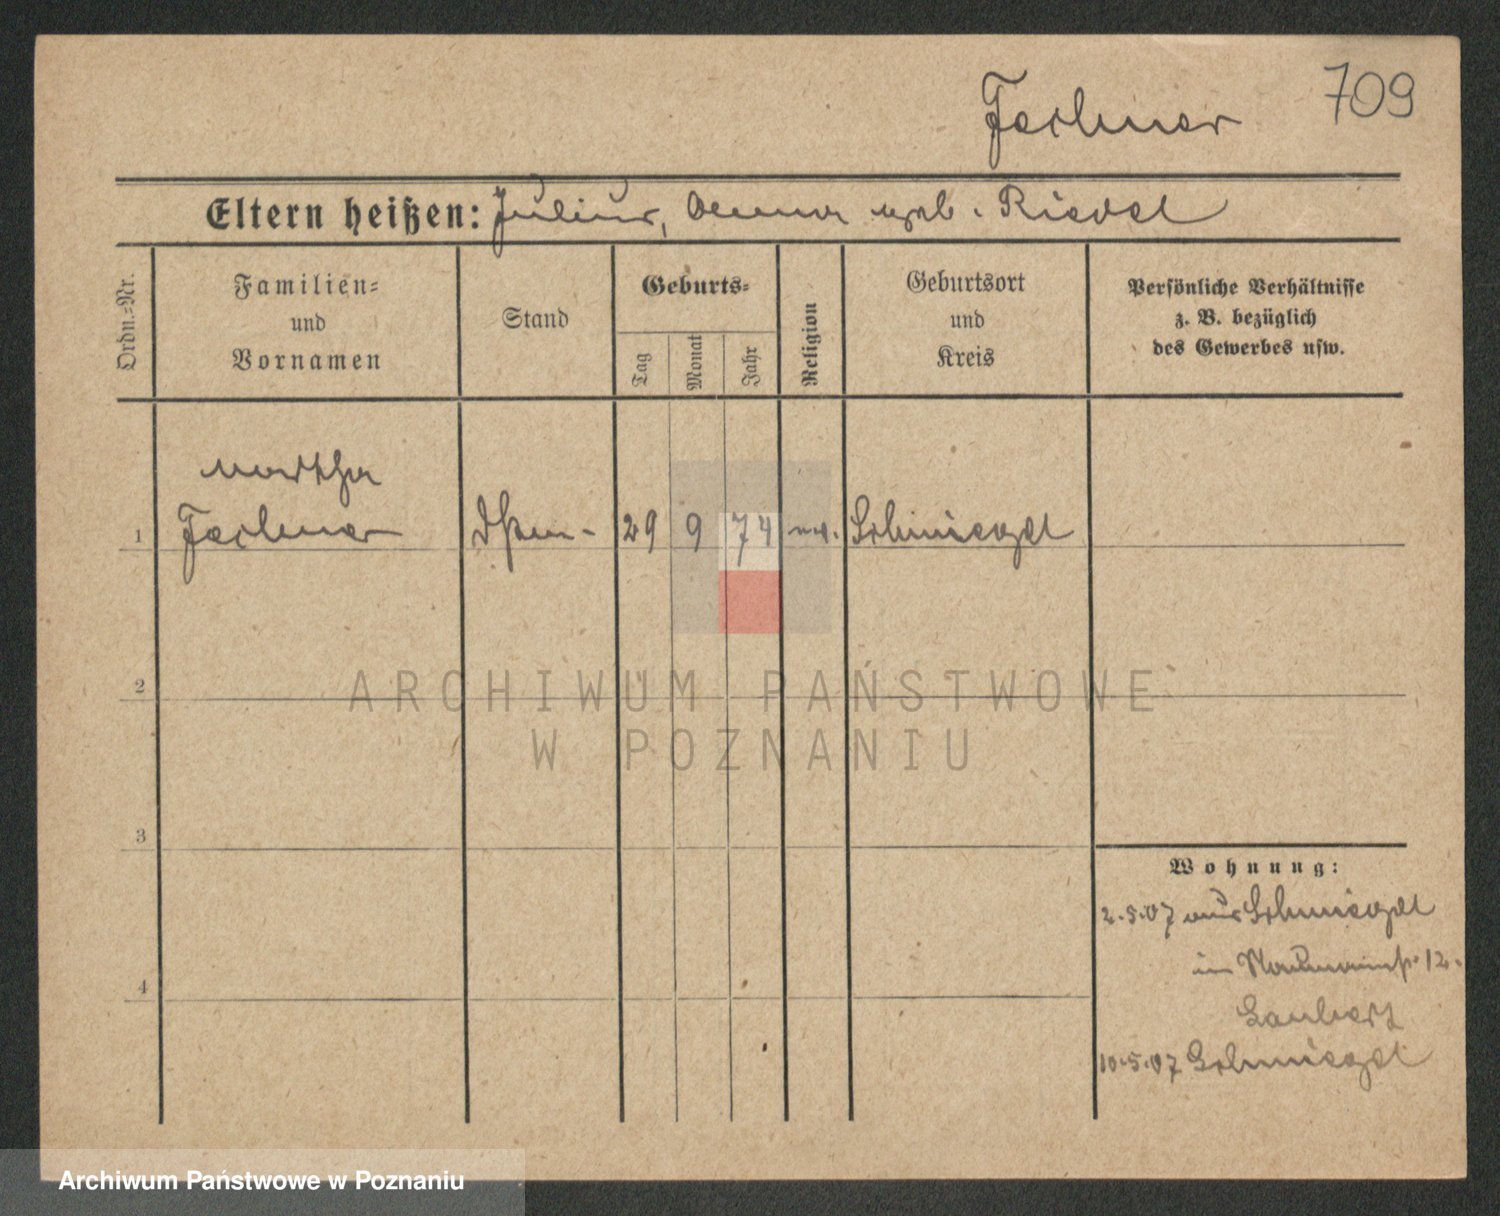 709
Fechner
Eltern heißen: Julius, Anna geb. Riedel
Ordn.=Nr.
Familien=
und
Vornamen
Stand
Geburts=
Tag
Monat
Jahr
Religion
Geburtsort
und
Kreis
Persönliche Verhältnisse
z. B. bezüglich
des Gewerbes usw.
Martha
1 Fechner 29 9 74 ev. Schmiegel
2
ARCHIWUM PAŃSTWOWE
W POZNANIU
3
Wohnung:
2.5.07 aus Schmiegel
in 12.
4
10.5.07 Schmiegel
Archiwum Państwowe w Poznaniu